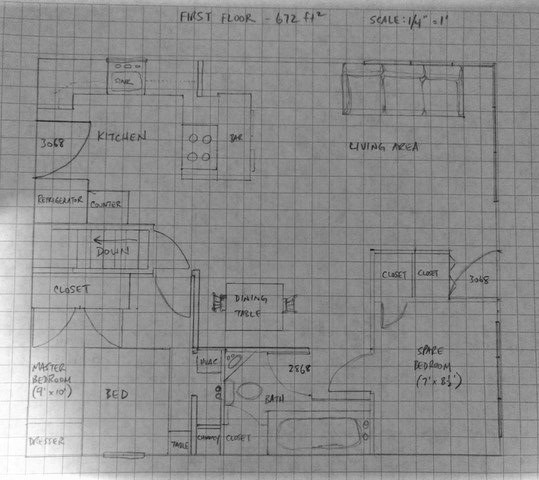 FIRST FLOOR - 672 ft²
SCALE: 1/4" = 1'
SINK
3068
KITCHEN
BAR
LIVING AREA
REFRIGERATOR
COUNTER
DOWN
CLOSET
CLOSET
CLOSET
3068
DINING
TABLE
MASTER
BEDROOM
(9' x 10')
BED
HVAC
2868
BATH
SPARE
BEDROOM
(7' x 8½')
DRESSER
TABLE
CLOSET